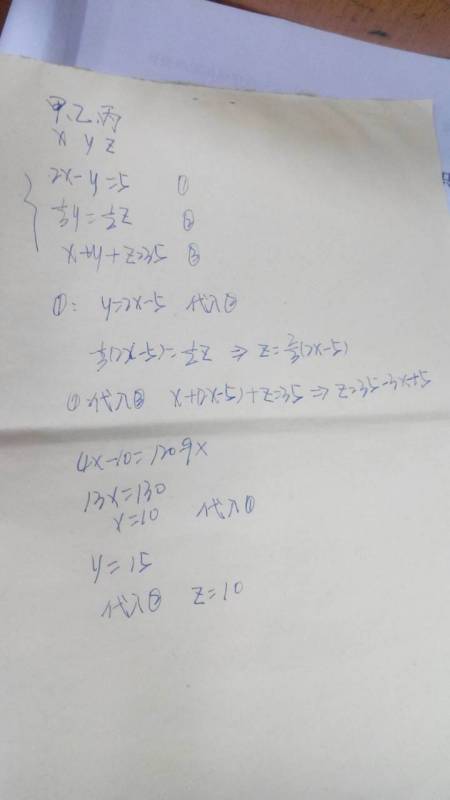 甲、乙、丙
x y z
2x-y=5 ①
⅓y=½z ②
x+y+z=35 ③
①: y=2x-5 代入②
⅓(2x-5)=½z ⇒ z=⅔(2x-5)
①代入③ x+(2x-5)+z=35 ⇒ z=35-3x+5
4x-10=120-9x
13x=130
x=10 代入①
y=15
代入② z=10